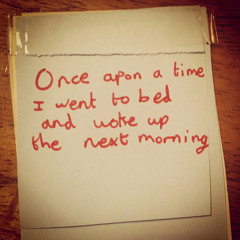 Once apon a time
I went to bed
and woke up
the next morning